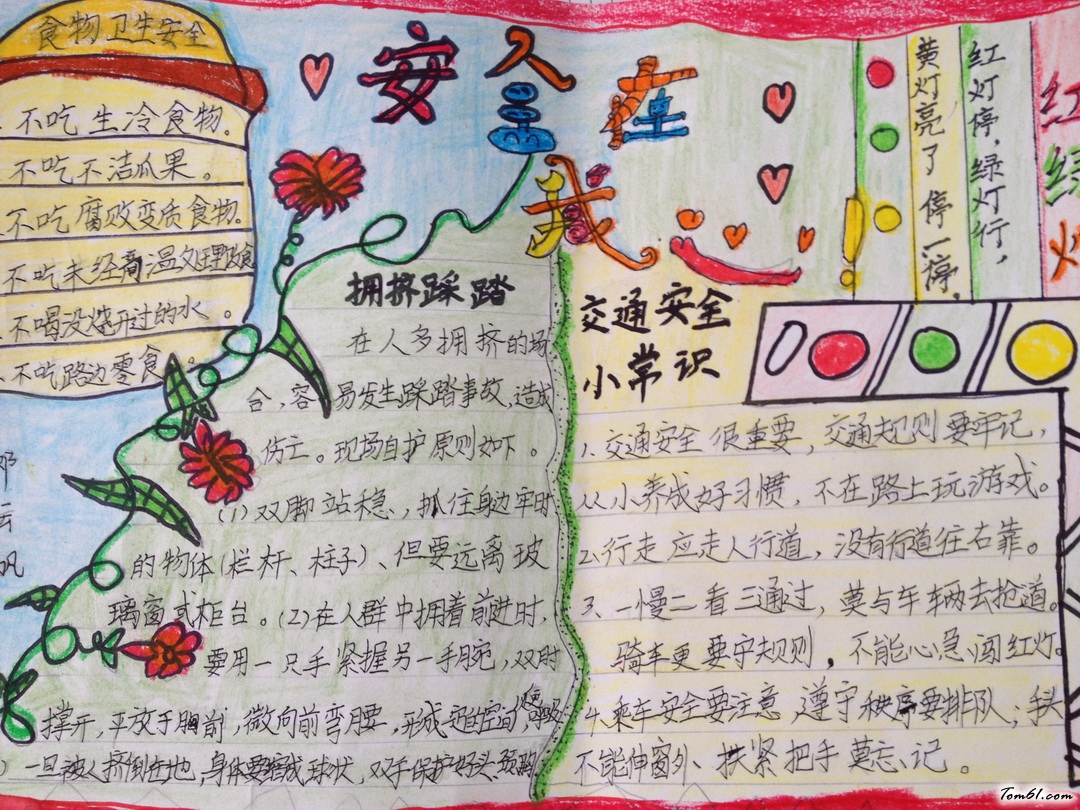 食物卫生安全
不吃生冷食物。
不吃不洁瓜果。
不吃腐败变质食物。
不吃未经高温处理
不喝没烧开过的水。
不吃路边零食。
安全在我心
黄灯亮了停一停,
红灯停,绿灯行,
红绿灯
拥挤踩踏
在人多拥挤的场
合,容易发生踩踏事故,造成
伤亡。现场自护原则如下。
(1)双脚站稳,抓住身边牢时
的物体(栏杆、柱子)、但要远离玻
璃窗或柜台。(2)在人群中拥着前进时,
要用一只手紧握另一手腕,双肘
撑开,平放于胸前,微向前弯腰,形成
一旦被人挤倒在地,身体要缩成球状,双手保护好头
交通安全
小常识
1.交通安全很重要,交通规则要牢记,
从小养成好习惯,不在路上玩游戏。
2.行走应走人行道,没有行道往右靠。
3、一慢二看三通过,莫与车辆去抢道。
骑车更要守规则,不能心急闯红灯。
4.乘车安全要注意,遵守秩序要排队;手头
不能伸窗外、扶紧把手莫忘记。
邓
云
Tom61.com